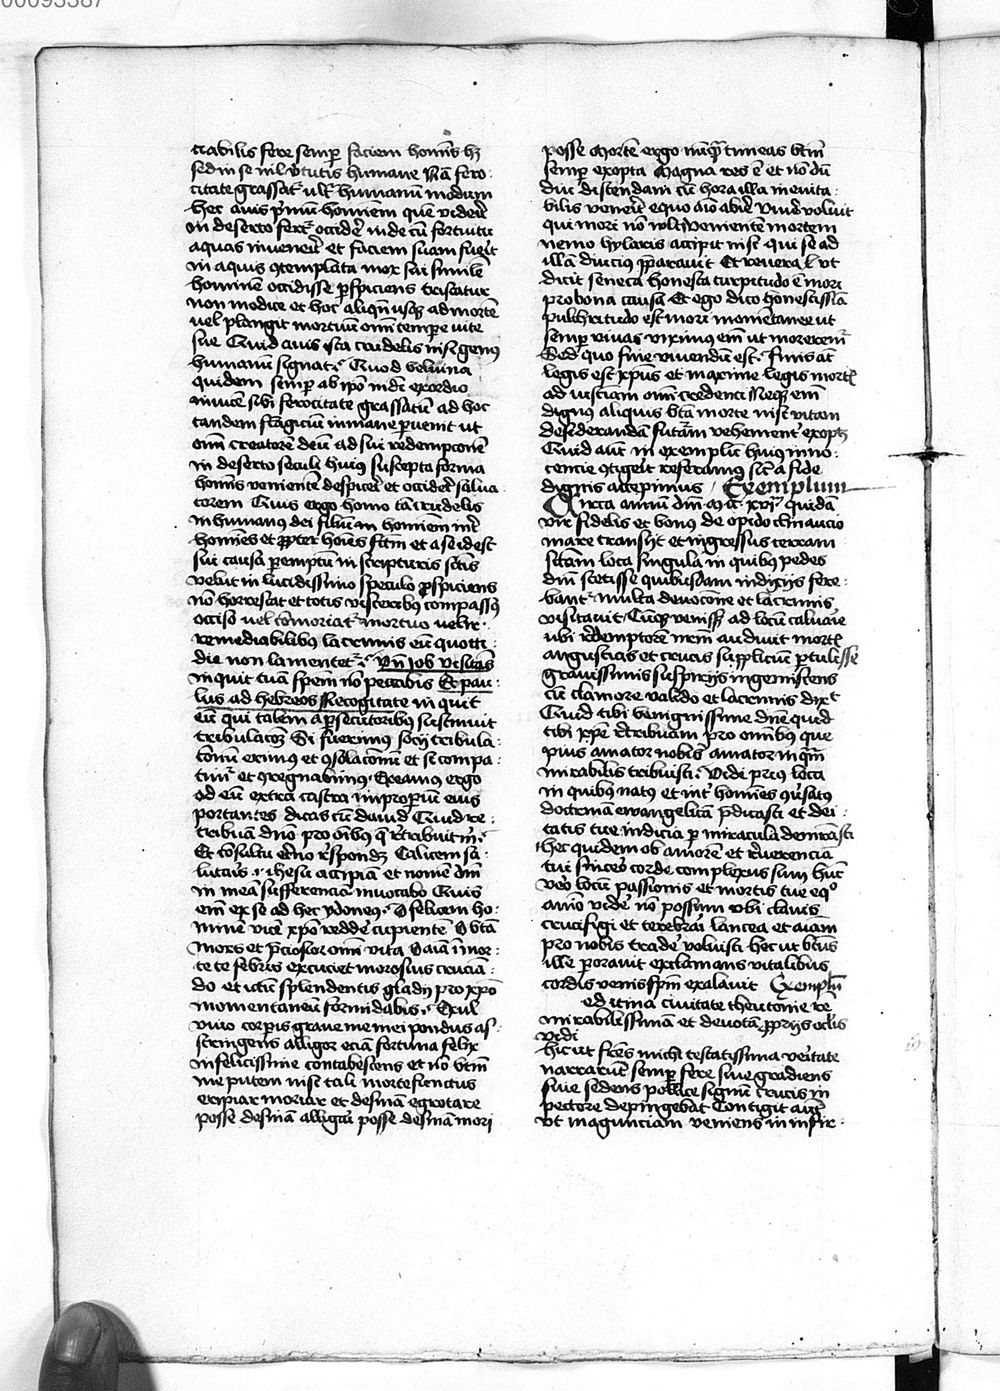 00093387
trabilis fere semper faciem hominis hz
sed in se nil virtutis humane Nam fero-
citate grassatur ultra humanum modum
hec auis primum hominem quem viderit
in deserto fertur occidere inde cum fortuitu
aquas inuenerit et faciem suam fuerit
in aquis contemplata mox sui similem
hominem occidisse perspiciens tristatur
non modice et hoc aliquando usque ad mortem
uel plangit mortuum omni tempore vite
sue Quid auis ista crudelis nisi genus
humanum signat Quod beluina
quidem semper ab ipso mundi exordio
inuicem sibi ferocitate grassatum ad hoc
tandem flagicium inmane peruenit ut
omnium creatorem deum ad sui redempcionem
in deserto seculi huius suscepta forma
hominis venientem despiceret et occideret salua-
torem Quis ergo homo tam crudelis
inhumanus dei filium in hominem inter
homines et propter homines factum et a se id est
sui causa peremptum in scripturis sanctis
velut in lucidissimo speculo prospiciens
non horrescat et totis visceribus compassus
occiso uel commoriatur mortuo uel
remediabilibus lacrimis eum quotti-
die non lamentetur Vnde Job visitans
inquit tuam speciem non peccabis Et pau-
lus ad hebreos Recogitate inquit
eum qui talem a persecutoribus sustinuit
tribulacionem Si fuerimus socii tribula-
cionum erimus et consolacionum et si compa-
timur et conregnabimus Exeamus ergo
ad eum extra castra improperium eius
portantes dicas cum dauid Quid re-
tribuam domino pro omnibus que retribuit mihi
Et consultu eterno respondens Calicem sa-
lutaris ihesu accipiam et nomen domini
in mea sufferencia inuocabo Quis
enim ex se ad hec ydoneus O felicem ho-
minem vicem xpo reddere cupientem O beata
mors et preciosior omni vita O anima in mor-
te te febris excuciet morosius crucian-
do et ictum splendentis gladii pro xpo
momentaneum formidabis Exul
viuo corporis graue me mei pondus as-
stringens alligor eciam fortuna felix
infelicissime contabescens et non beatum
me putem nisi tali morte functus
eripiar moriar et desinam egrotare
posse desinam alligari posse desinam mori
posse Mortem ergo nunquam timeas beatam
semper exopta Magna res est et non dum
diu distendam cum hora illa ineuita-
bilis venerit equo animo abire Viuere voluit
qui mori non vult Venientem mortem
nemo hylaris accipit nisi qui se ad
illam diucius preparauit Et reuera ut
dicit seneca honesta turpitudo est mori
pro bona causa Et ego dico honestissima
pulchritudo est mori momentanee ut
semper viuas viximus enim ut moreremur
Sed quo fine viuendum est finis autem
legis est xpus et maxime legis mortis
ad iusticiam omni credenti Neque enim
dignus aliquis beata morte nisi vitam
desiderandam futuram vehementer exoptet
Quid autem in exemplum huius inno-
cencie contigerit referamus sicut a fide
dignis accepimus Exemplum
Circa annum domini quidam
vir fidelis et bonus de opido
mare transiit et ingressus terram
sanctam loca singula in quibus pedes
domini stetisse quibusdam indiciis fere-
bantur multa deuocione et lacrimis
visitauit Cumque venisset ad locum caluarie
ubi redemptorem nostrum audiuit mortis
angustias et crucis supplicium pertulisse
grauissimis suspiriis ingemiscens
cum clamore valido et lacrimis dixit
Quid tibi benignissime domine quid
tibi xpe retribuam pro omnibus que
pius amator nobis amator inquam
mirabilis tribuisti Vidi prius loca
in quibus natus et inter homines conuersatus
doctrinam ewangelicam predicasti et dei-
tatis tue indicia per miracula demonstrasti
hec quidem ob amorem et reuerenciam
tui sincero corde complexus sum hunc
vero locum passionis et mortis tue equo
animo videre non possum vbi clauis
crucifigi et terebrari lancea et animam
pro nobis tradere voluisti hec ut beatus
ille perorauit exclamans vitalibus
cordis venis spiritum exalauit Exemplum
ed itma ciuitate theutonie rem
mirabilissimam et deuotam propriis oculis
vidi
hic ut fratres michi testatissima veritate
narrarunt semper fere siue gradiens
siue sedens pollice signum crucis in
pectore depingebat Contigit autem
vt magunciam veniens in infir-